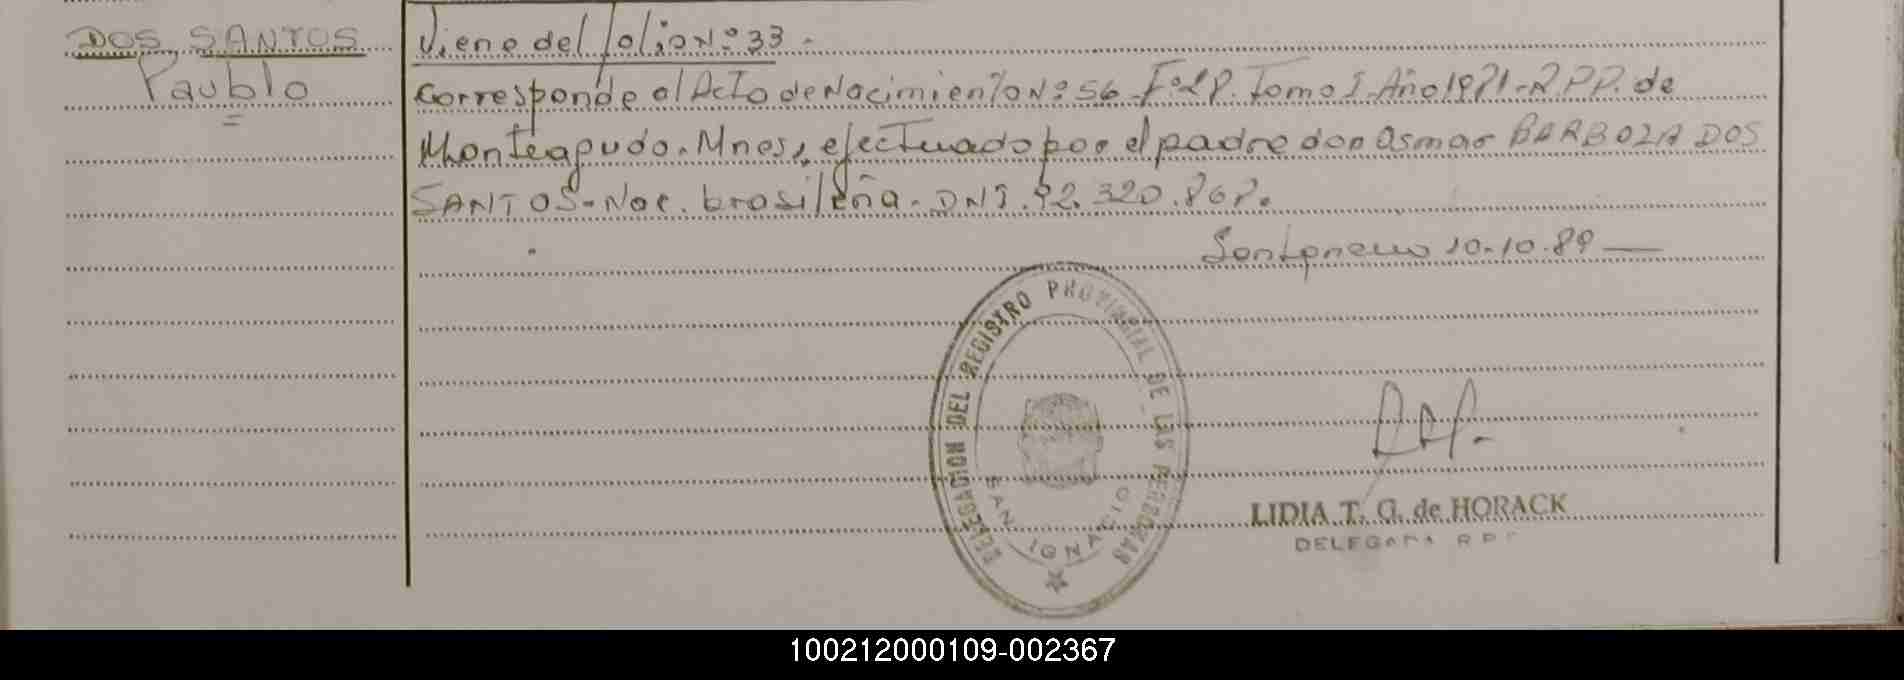 DOS SANTOS
Paublo
Viene del folio Nº 33.-
Corresponde al Acta de Nacimiento Nº 56- Fº Tomo I- Año - R.P.P. de
Monteagudo. Mnes, efectuado por el padre don Osmar BARBOZA DOS
SANTOS- Nac. brasileña- DNI. 92.320.868.
10-10-89
DELEGACION DEL REGISTRO PROVINCIAL DE LAS PERSONAS
SAN IGNACIO
LIDIA T. G. de HORACK
DELEGADA R.P.P.
100212000109-002367